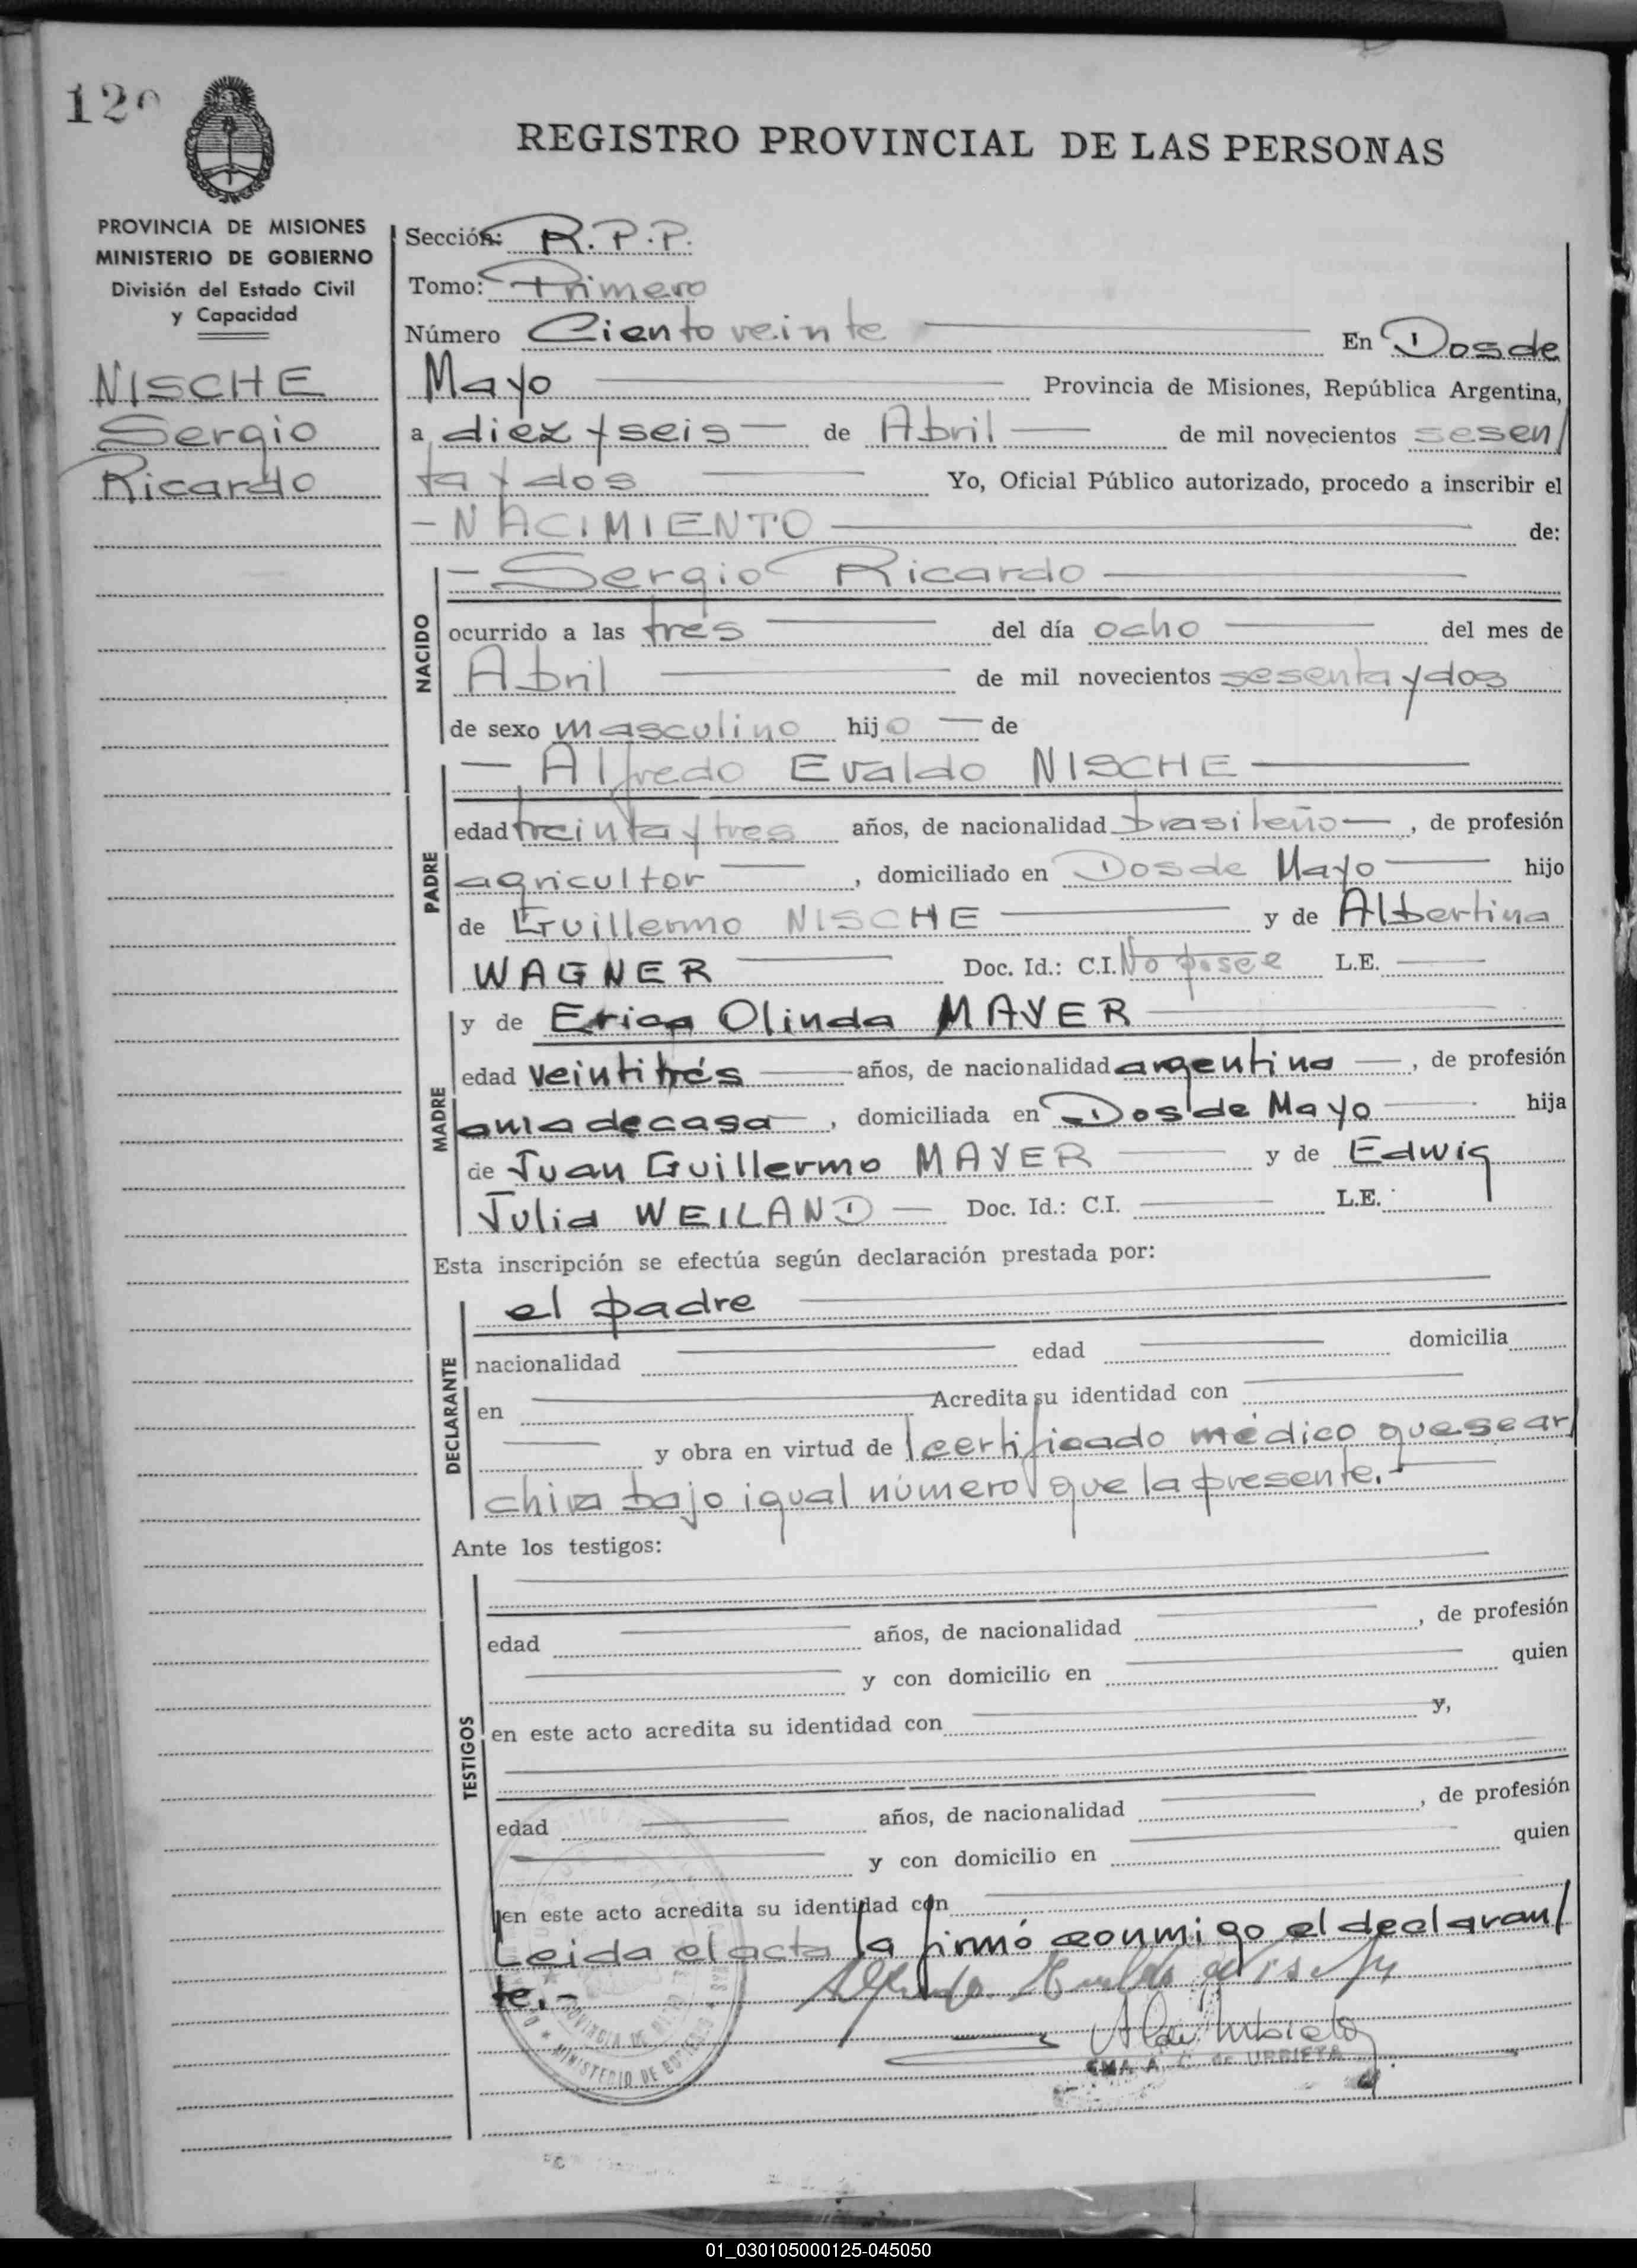 120
REGISTRO PROVINCIAL DE LAS PERSONAS
PROVINCIA DE MISIONES
MINISTERIO DE GOBIERNO
División del Estado Civil
y Capacidad
NISCHE
Sergio
Ricardo
Sección: R.P.P.
Tomo: Primero
Número Ciento veinte En Dos de
Mayo Provincia de Misiones, República Argentina,
a diez y seis de Abril de mil novecientos sesen/
ta y dos Yo, Oficial Público autorizado, procedo a inscribir el
- NACIMIENTO de:
NACIDO
- Sergio Ricardo
ocurrido a las tres del día ocho del mes de
Abril de mil novecientos sesenta y dos
de sexo masculino hijo de
PADRE
- Alfredo Evaldo NISCHE
edad treinta y tres años, de nacionalidad brasileño, de profesión
agricultor, domiciliado en Dos de Mayo hijo
de Guillermo NISCHE y de Albertina
WAGNER Doc. Id.: C.I. No posee L.E.
MADRE
y de Erica Olinda MAYER
edad veintitrés años, de nacionalidad argentina, de profesión
ama de casa, domiciliada en Dos de Mayo hija
de Juan Guillermo MAYER y de Edwig
Julia WEILAND Doc. Id.: C.I. L.E.
Esta inscripción se efectúa según declaración prestada por:
DECLARANTE
el padre
nacionalidad edad domicilia
en Acredita su identidad con
y obra en virtud de certificado médico que se ar/
chiva bajo igual número que la presente.-
Ante los testigos:
TESTIGOS
edad años, de nacionalidad , de profesión
y con domicilio en quien
en este acto acredita su identidad con y,
edad años, de nacionalidad , de profesión
y con domicilio en quien
en este acto acredita su identidad con
Leida el acta la firmó conmigo el declaran/
te.-
PROVINCIA DE
MINISTERIO DE GOBIERNO
de URBIETA
01_030105000125-045050